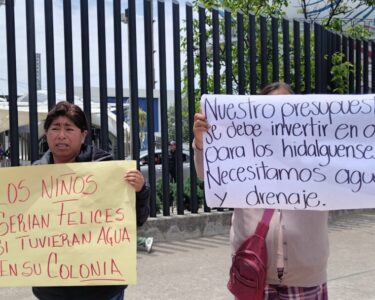 LOS NIÑOS
SERIAN FELICES
SI TUVIERAN AGUA
EN SU COLONIA
Nuestro presupuesto
se debe invertir en
para los hidalguense
Necesitamos agua
y drenaje.